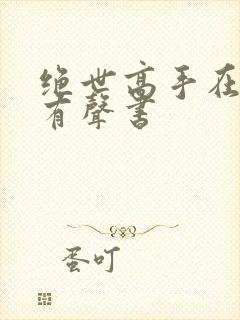 绝世高手在
有聲书
蛋叮